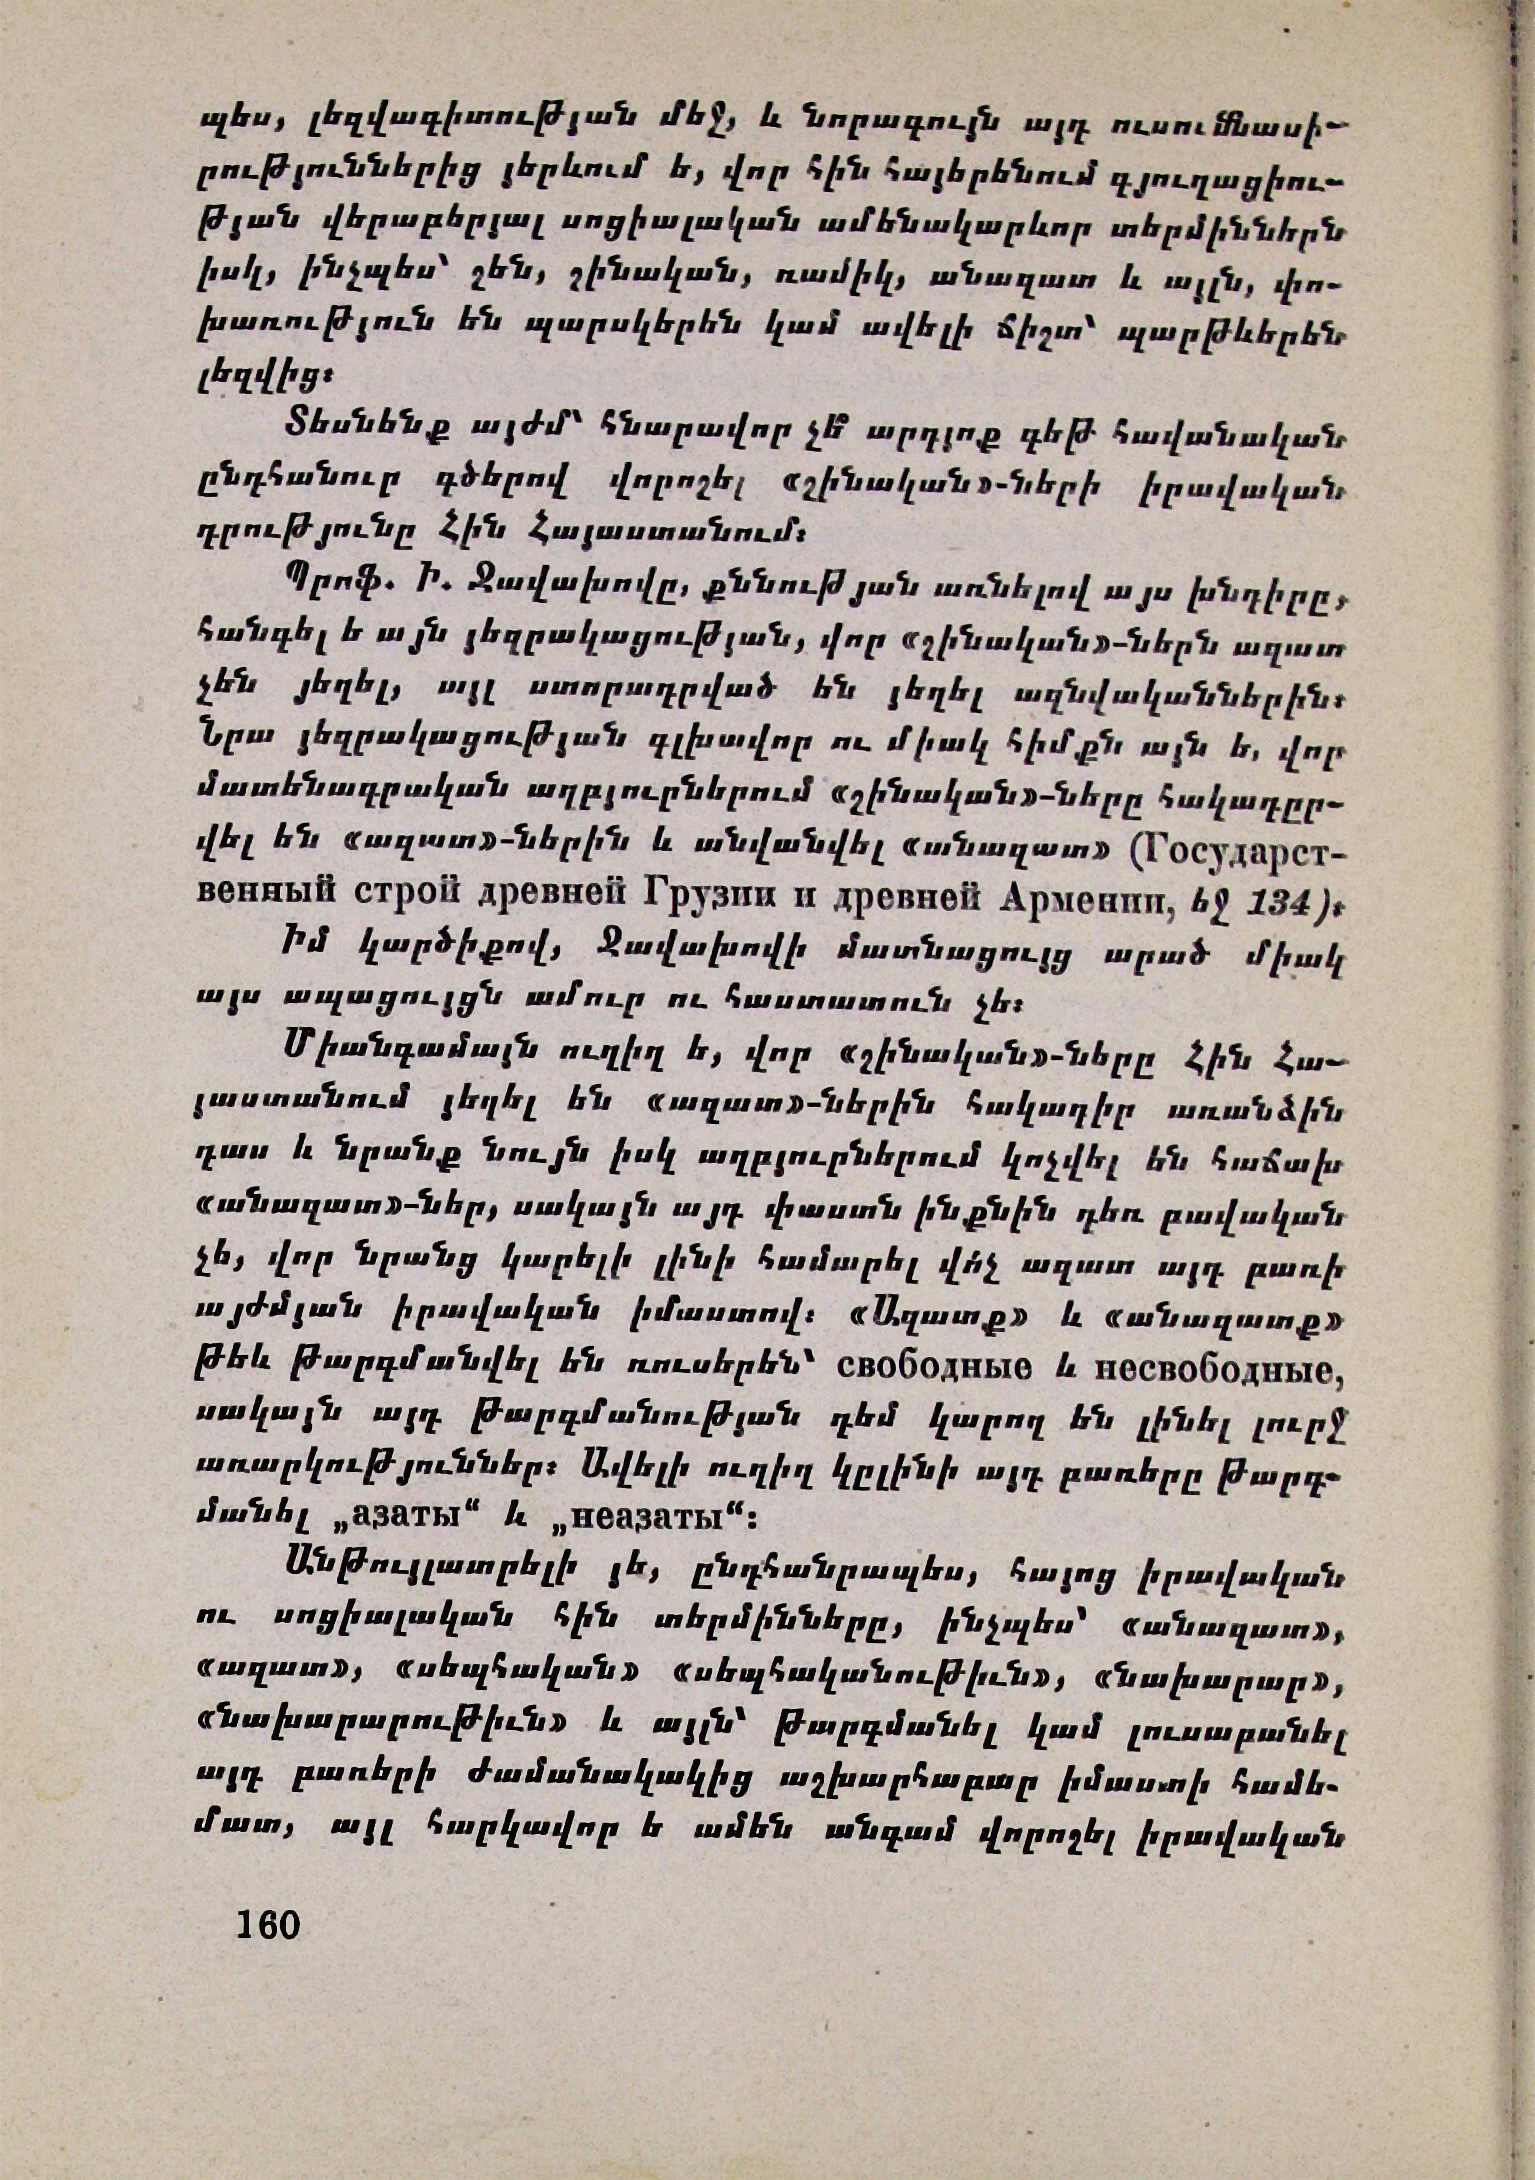 պես, լեզվագիտության մեջ, և նորագույն այդ ուսումնասի-
րություններից յերևում ե, վոր հին հայերենում գյուղացիու-
թյան վերաբերյալ սոցիալական ամենակարևոր տերմիններն
իսկ, ինչպես՝ շեն, շինական, ռամիկ, անազատ և այլն, փո-
խառություն են պարսկերեն կամ ավելի ճիշտ՝ պարթևերեն
լեզվից։
Տեսնենք այժմ՝ հնարավոր չե՞ արդյոք գեթ հավանական
ընդհանուր գծերով վորոշել «շինական»-ների իրավական
դրությունը Հին Հայաստանում։
Պրոֆ. Ի. Ջավախովը, քննության առնելով այս խնդիրը,
հանգել ե այն յեզրակացության, վոր «շինական»-ներն ազատ
չեն յեղել, այլ ստորադրված են յեղել ազնվականներին։
Նրա յեզրակացության գլխավոր ու միակ հիմքն այն ե, վոր
մատենագրական աղբյուրներում «շինական»-ները հակադըր-
վել են «ազատ»-ներին և անվանվել «անազատ» (Государст-
венный строй древней Грузии и древней Армении, եջ 134)։
Իմ կարծիքով, Ջավախովի մատնացույց արած միակ
այս ապացույցն ամուր ու հաստատուն չե։
Միանգամայն ուղիղ ե, վոր «շինական»-ները Հին Հա-
յաստանում յեղել են «ազատ»-ներին հակադիր առանձին
դաս և նրանք նույն իսկ աղբյուրներում կոչվել են հաճախ
«անազատ»-ներ, սակայն այդ փաստն ինքնին դեռ բավական
չե, վոր նրանց կարելի լինի համարել վո՛չ ազատ այդ բառի
այժմյան իրավական իմաստով։ «Ազատք» և «անազատք»
թեև թարգմանվել են ռուսերեն՝ свободные և несвободные,
սակայն այդ թարգմանության դեմ կարող են լինել լուրջ
առարկություններ։ Ավելի ուղիղ կըլինի այդ բառերը թարգ-
մանել „азаты“ և „неазаты“։
Անթույլատրելի յե, ընդհանրապես, հայոց իրավական
ու սոցիալական հին տերմինները, ինչպես՝ «անազատ»,
«ազատ», «սեպհական» «սեպհականութիւն», «նախարար»,
«նախարարութիւն» և այլն՝ թարգմանել կամ լուսաբանել
այդ բառերի ժամանակակից աշխարհաբար իմաստի համե-
մատ, այլ հարկավոր ե ամեն անգամ վորոշել իրավական
160